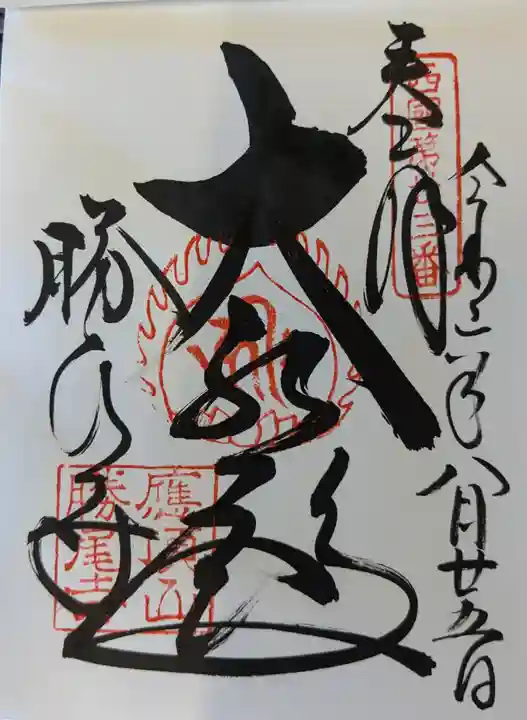 西國第廿三番
奉拝
令和年八月廿五日
大悲殿
勝尾寺
應頂山
勝尾寺